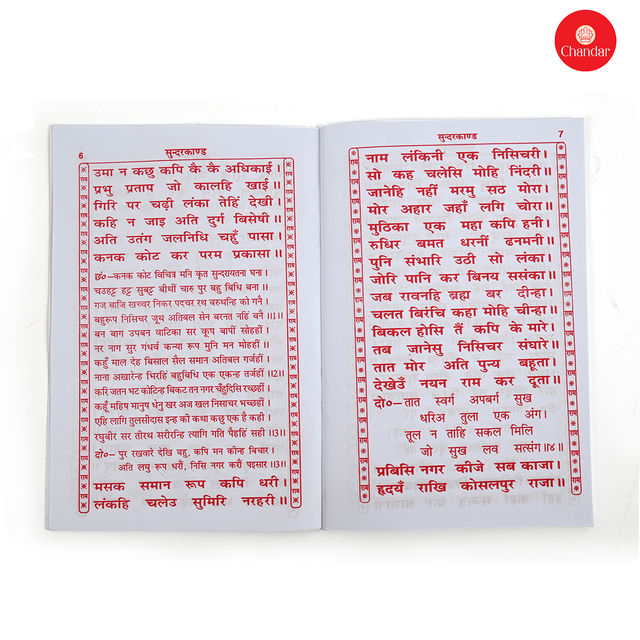 Chandar
6
सुन्दरकाण्ड
उमा न कछु कपि कै कै अधिकाई ।
प्रभु प्रताप जो कालहि खाई ॥
गिरि पर चढ़ी लंका तेहिं देखी ।
कहि न जाइ अति दुर्ग बिसेषी ॥
अति उतंग जलनिधि चहुँ पासा ।
कनक कोट कर परम प्रकासा ॥
छं०–कनक कोट विचित्र मनि कृत सुन्दरायतना घना ।
चउहट्ट हट्ट सुबट्ट बीथीं चारु पुर बहु बिधि बना ॥
गज बाजि खच्चर निकर पदचर रथ बरुथन्हि को गनै ।
बहुरूप निसिचर जूथ अतिबल सेन बरनत नहिं बनै ॥1॥
बन बाग उपवन वाटिका सर कूप बापीं सोहहीं ।
नर नाग सुर गंधर्व कन्या रूप मुनि मन मोहहीं ॥
कहुँ माल देह बिसाल सैल समान अतिबल गर्जहीं ।
नाना अखारेन्ह भिरहिं बहुबिधि एक एकन्ह तर्जहीं ॥2॥
करि जतन भट कोटिन्ह बिकट तन नगर चहुँदिसि रच्छहीं ।
कहूँ महिष मानुष धेनु खर अज खल निसाचर भच्छहीं ॥
एहि लागि तुलसीदास इन्ह की कथा कछु एक है कही ।
रघुबीर सर तीरथ सरीरन्हि त्यागि गति पैहहिं सही ॥3॥
दो०– पुर रखवारे देखि बहु, कपि मन कीन्ह बिचार ।
अति लघु रूप धरौं, निसि नगर करौं पइसार ॥3॥
मसक समान रूप कपि धरी ।
लंकहि चलेउ सुमिरि नरहरी ॥
सुन्दरकाण्ड
7
नाम लंकिनी एक निसिचरी ।
सो कह चलेसि मोहि निंदरी ॥
जानेहि नहीं मरमु सठ मोरा ।
मोर अहार जहाँ लगि चोरा ॥
मुठिका एक महा कपि हनी ।
रुधिर बमत धरनीं ढनमनी ॥
पुनि संभारि उठी सो लंका ।
जोरि पानि कर बिनय ससंका ॥
जब रावनहि ब्रह्मा बर दीन्हा ।
चलत बिरंचि कहा मोहि चीन्हा ॥
बिकल होसि तैं कपि के मारे ।
तब जानेसु निसिचर संघारे ॥
तात मोर अति पुन्य बहूता ।
देखेउँ नयन राम कर दूता ॥
दो०–तात स्वर्ग अपबर्ग सुख
धरिअ तुला एक अंग ।
तूल न ताहि सकल मिलि
जो सुख लव सत्संग ॥४॥
प्रबिसि नगर कीजे सब काजा ।
हृदयँ राखि कोसलपुर राजा ॥